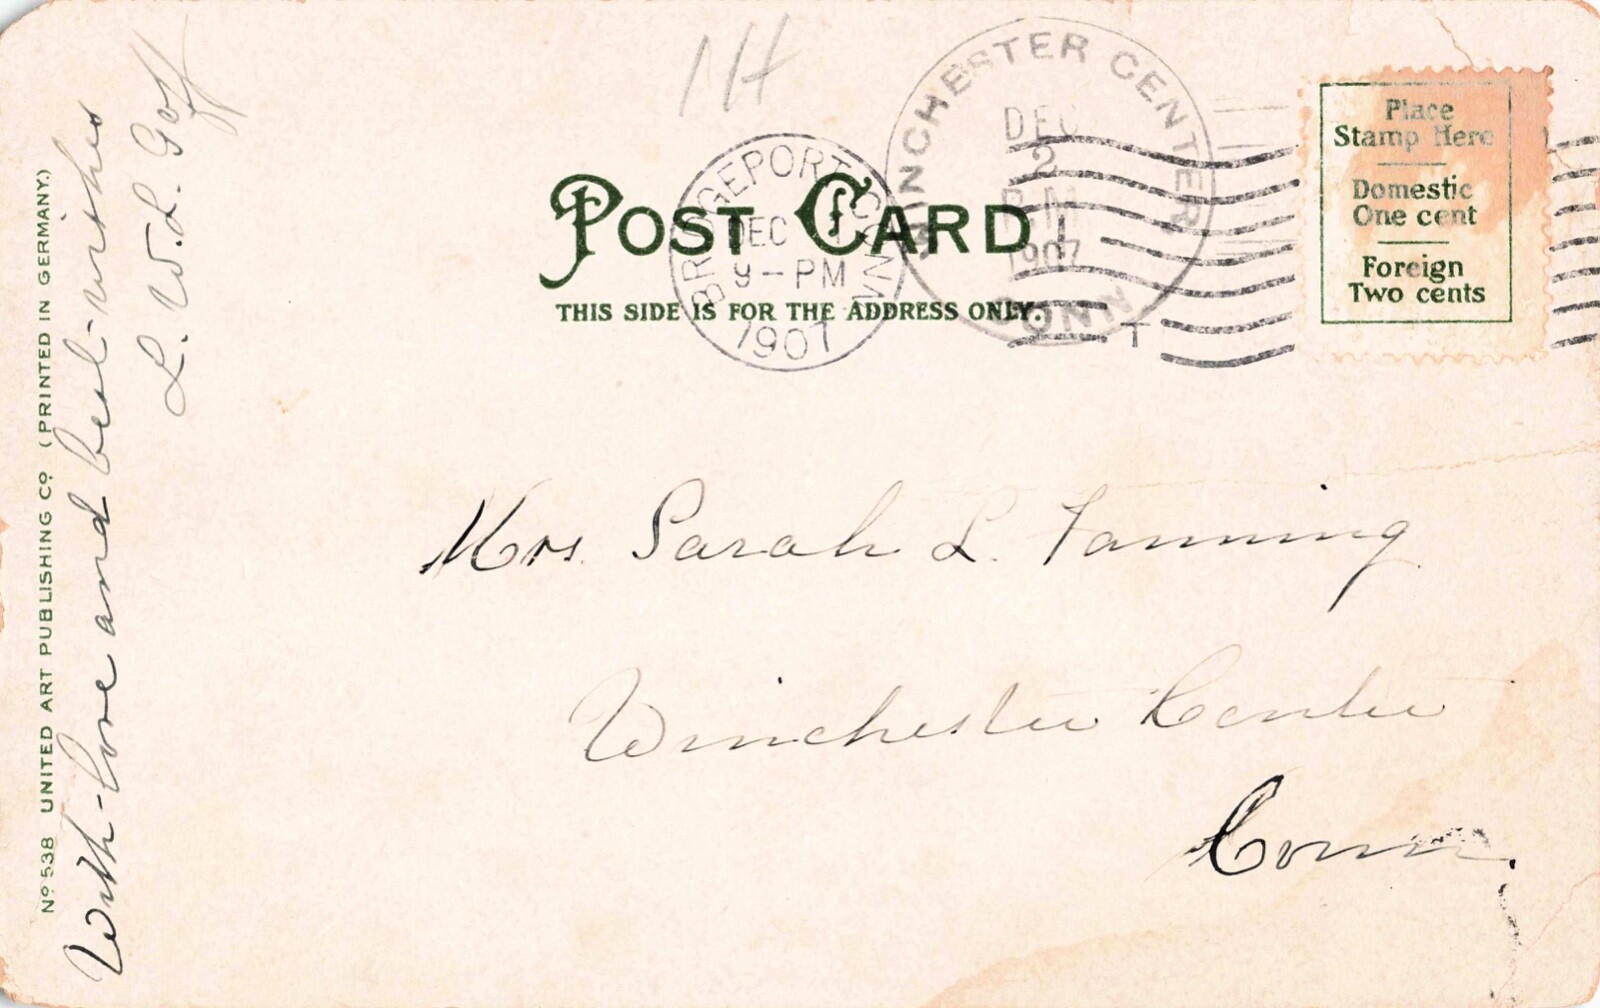 1H
WINCHESTER CENTER
DEC
2
PM
1907
CONN
BRIDGEPORT CONN
DEC 1
9-PM
1907
POST CARD
THIS SIDE IS FOR THE ADDRESS ONLY.
T
Place
Stamp Here
Domestic
One cent
Foreign
Two cents
Mrs. Sarah L. Fanning
Winchester Center
Conn.
With love and best wishes
L. W. L. Goff
Nº 538 UNITED ART PUBLISHING Cº (PRINTED IN GERMANY.)